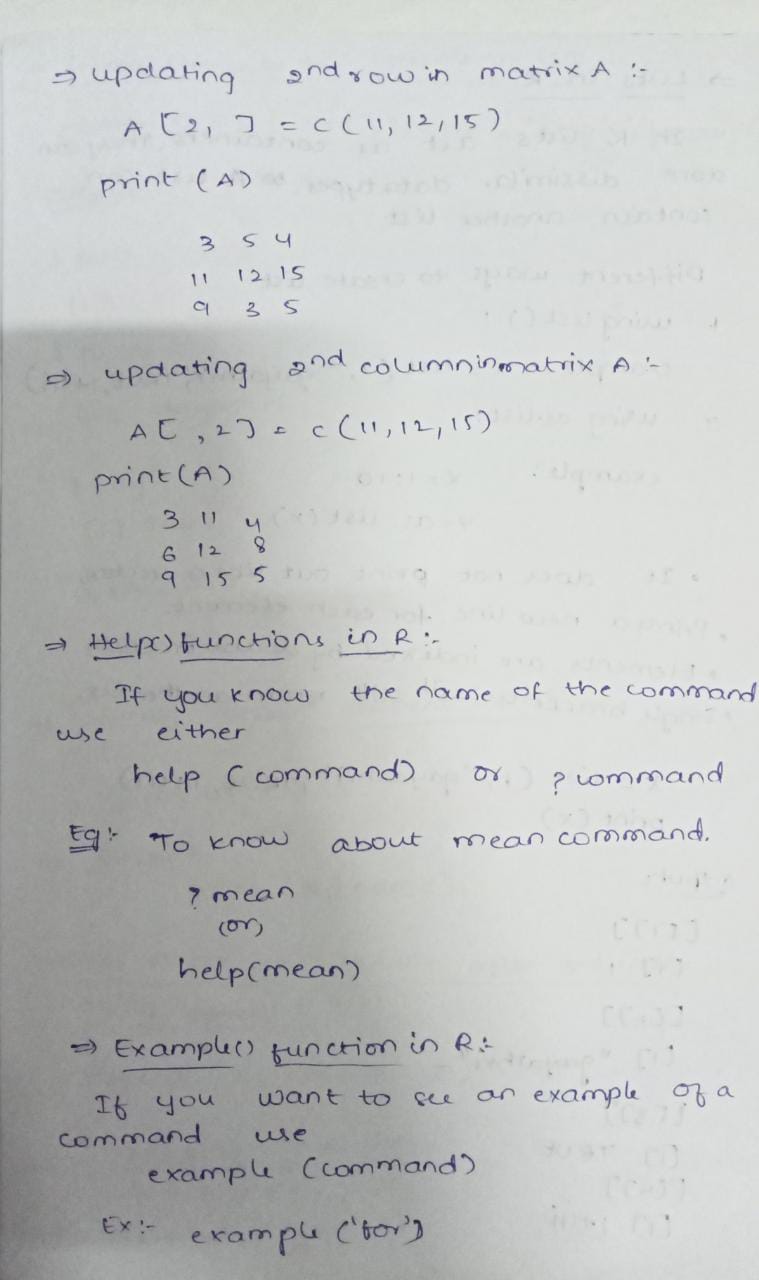 ⇒ updating 2nd row in matrix A :-
A [2, ] = c (11, 12, 15)
print (A)
3 5 4
11 12 15
9 3 5
⇒ updating 2nd column in matrix A :-
A[ ,2] = c (11, 12, 15)
print (A)
3 11 4
6 12 8
9 15 5
⇒ Help() functions in R :-
If you know the name of the command
use either
help (command) or ? command
Eg :- To know about mean command.
? mean
(or)
help(mean)
⇒ Example() function in R :-
If you want to see an example of a
command use
example (command)
Ex :- example ('for')